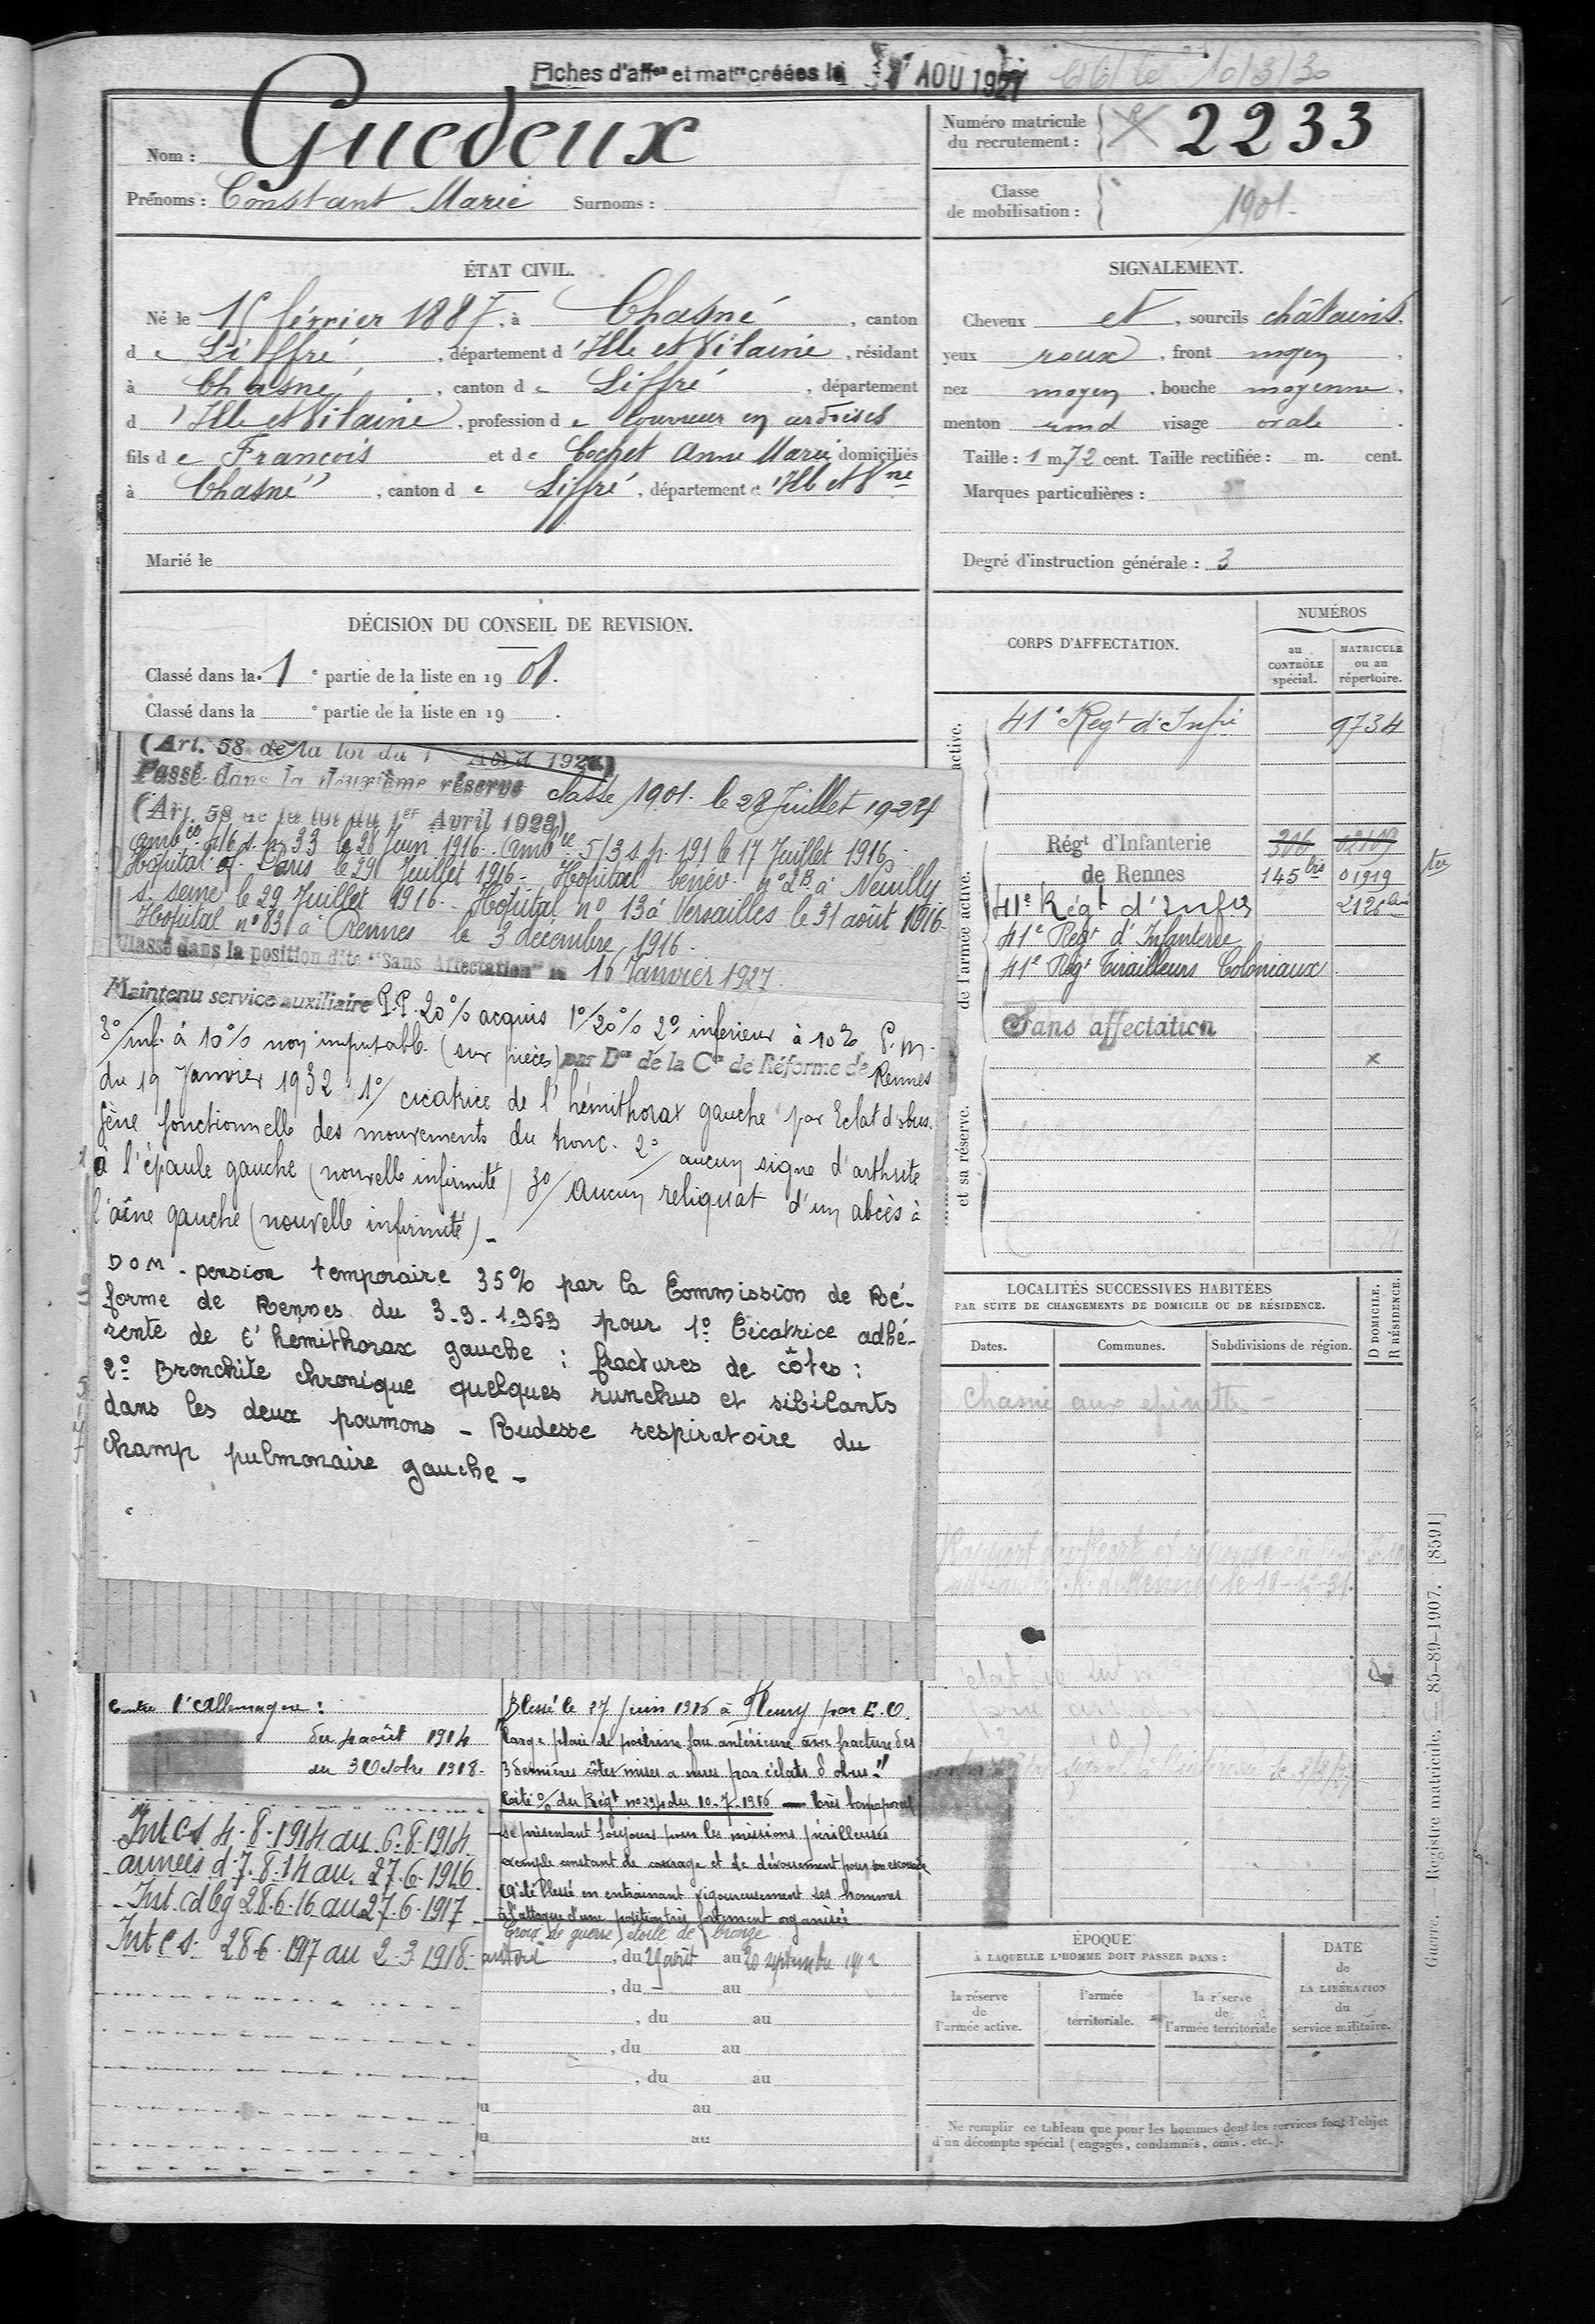 Fiches d'affon et matre créées le 1er AOU 1927
10/3/30
Nom : Guedeux
Prénoms : Constant Marie Surnoms :
Numéro matricule du recrutement : 2233
Classe de mobilisation : 1901.
ÉTAT CIVIL.
Né le 15 février 1887, à Chasné, canton
de Liffré, département d'Ille et Vilaine, résidant
à Chasné, canton de Liffré, département
d'Ille et Vilaine, profession de couvreur en ardoises
fils de François et de Cochet Anne Marie domiciliés
à Chasné, canton de Liffré, département d'Ille et Vne
Marié le
SIGNALEMENT.
Cheveux et, sourcils châtains,
yeux roux, front moyen,
nez moyen, bouche moyenne,
menton rond visage ovale.
Taille : 1 m. 72 cent. Taille rectifiée : m. cent.
Marques particulières :
Degré d'instruction générale : 3
DÉCISION DU CONSEIL DE REVISION.
Classé dans la 1e partie de la liste en 1908.
Classé dans la e partie de la liste en 19 .
CORPS D'AFFECTATION.
NUMÉROS
au CONTRÔLE spécial.
MATRICULE ou au répertoire.
active.
41e Regt d'Infie 9734
de l'armée active.
Régt d'Infanterie 306 02109
de Rennes 145 bis 01919
ter
41e Régt d'Infie 2126 bis
41e Regt d'Infanterie
41e Regt Tirailleurs Coloniaux
Sans affectation
et sa réserve.
(Art. 58 de la loi du 1 Avril 1923)
Passé dans la deuxième réserve classe 1901. le 28 Juillet 1927
(Art. 58 de la loi du 1er Avril 1923)
ambce 1/16 s.p. 33 le 28 Juin 1916. ambce 5/3 s.p. 191 le 17 Juillet 1916
Hôpital Paris le 29 Juillet 1916 - Hôpital bénév. n° 2B à Neuilly
s. seine le 29 Juillet 1916 - Hôpital n° 13 à Versailles le 31 août 1916.
Hôpital n° 83 à Rennes le 3 décembre 1916.
Classé dans la position dite "Sans Affectation" le 16 Janvier 1927.
Maintenu service auxiliaire P.P. 20% acquis 1°/20% 2° inférieur à 10% P.m.
3°/inf. à 10% non imputable (sur pièces) par Don de la Con de Réforme de Rennes
du 19 Janvier 1932 1°/ cicatrice de l'hémithorax gauche par Eclat d'obus.
gêne fonctionnelle des mouvements du tronc. 2°/ aucun signe d'arthrite
à l'épaule gauche (nouvelle infirmité) 3°/ Aucun reliquat d'un abcès à
l'aine gauche (nouvelle infirmité) -
DOM - pension temporaire 35% par la Commission de Ré-
forme de Rennes du 3-9-1.953 pour 1° Cicatrice adhé-
rente de l'hémithorax gauche : fractures de côtes :
2° Bronchite chronique quelques runchus et sibilants
dans les deux poumons - Rudesse respiratoire du
champ pulmonaire gauche -
LOCALITÉS SUCCESSIVES HABITÉES
PAR SUITE DE CHANGEMENTS DE DOMICILE OU DE RÉSIDENCE.
Dates. Communes. Subdivisions de région. D DOMICILE. R RÉSIDENCE.
Chasné aux epinette
Contre l'Allemagne :
du 4 août 1914
au 3 Octobre 1918.
Blessé le 27 Juin 1916 à Fleury par E.O.
"large plaie de poitrine face antérieure avec fracture des
3 dernières côtes mises a nues par éclats d'obus."
Cité o/ du Régt no 294 du 10-7-1916 - très bon caporal
se présentant toujours pour les missions périlleuses
exemple constant de courage et de dévouement pour son escouade
A été blessé en entrainant vigoureusement ses hommes
à l'attaque d'une position très fortement organisée
Croix de guerre étoile de bronze
Int C S 4-8-1914 au 6.8.1914.
armées d. 7.8.14 au 27.6.1916.
Int. cd bg 28.6.16 au 27.6.1917
Int C S. 28 6 1917 au 2.3.1918.
, du 29 août au 20 septembre 1912
, du au
, du au
, du au
, du au
au
au
ÉPOQUE
À LAQUELLE L'HOMME DOIT PASSER DANS :
la réserve de l'armée active.
l'armée territoriale.
la réserve de l'armée territoriale
DATE de LA LIBÉRATION du service militaire.
Ne remplir ce tableau que pour les hommes dont les services font l'objet
d'un décompte spécial (engagés, condamnés, omis, etc.).
Guerre. — Registre matricule. — 85-89-1907. [8591]